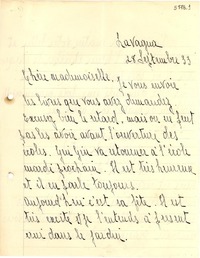 5786.1
Lavagna
28 Septembre 33
Chère mademoiselle,
Je vous envoie
les livres que vous avez demandés
Excusez bien le retard, mais on ne peut
pas les avoir avant l'ouverture des
écoles. Gigi va retourner à l'école
mardi prochain. Il est très heureux
et il en parle toujours.
Aujourd'hui c'est sa fête. Il est
très excité et je l'entends à présent
dans le jardin.